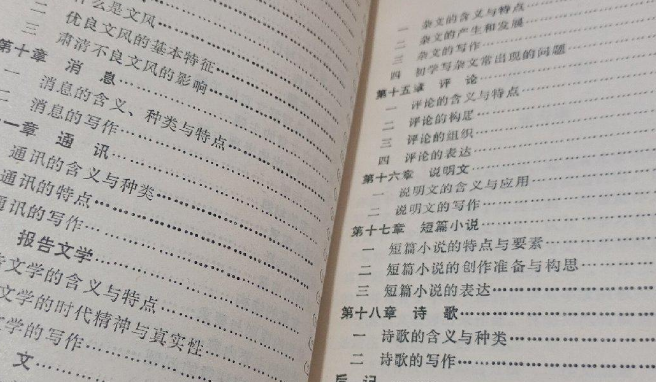 什么是文风
二 优良文风的基本特征
三 肃清不良文风的影响
第十章 消 息
一 消息的含义、种类与特点
二 消息的写作
一章 通 讯
通讯的含义与种类
通讯的特点
通讯的写作
报告文学
文学的含义与特点
文学的时代精神与真实性
文学的写作
文
一 杂文的含义与特点
二 杂文的产生和发展
三 杂文的写作
四 初学写杂文常出现的问题
第十五章 评 论
一 评论的含义与特点
二 评论的构思
三 评论的组织
四 评论的表达
第十六章 说明文
一 说明文的含义与应用
二 说明文的写作
第十七章 短篇小说
一 短篇小说的特点与要素
二 短篇小说的创作准备与构思
三 短篇小说的表达
第十八章 诗 歌
一 诗歌的含义与种类
二 诗歌的写作
后 记